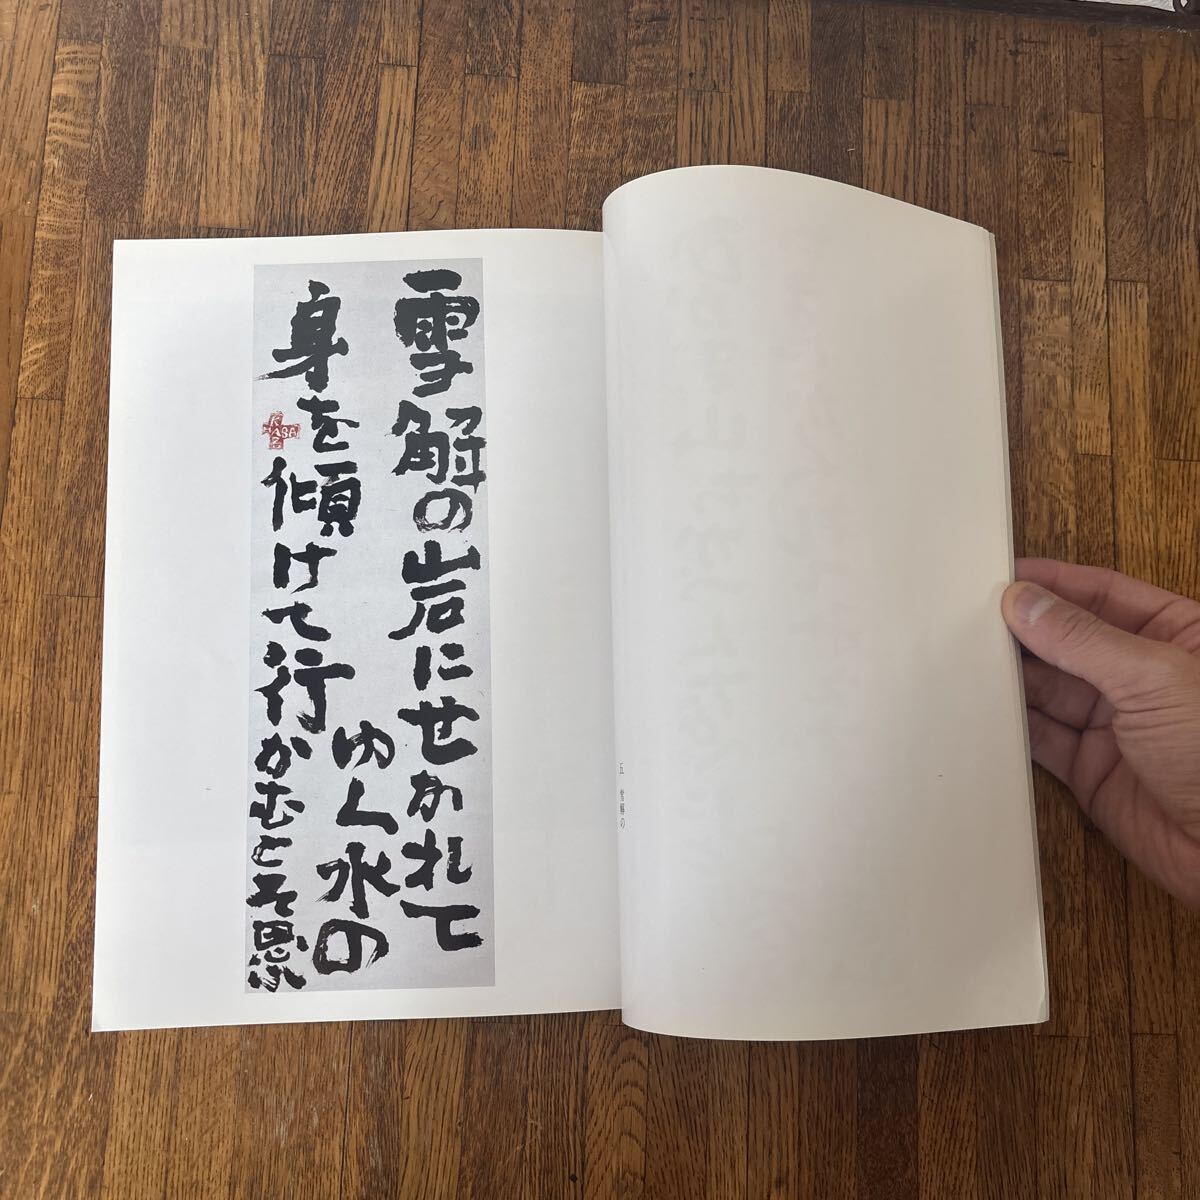 雪解の岩にせかれて
ゆく水の
身を傾けて行かむとそ思ふ
五 雪解の